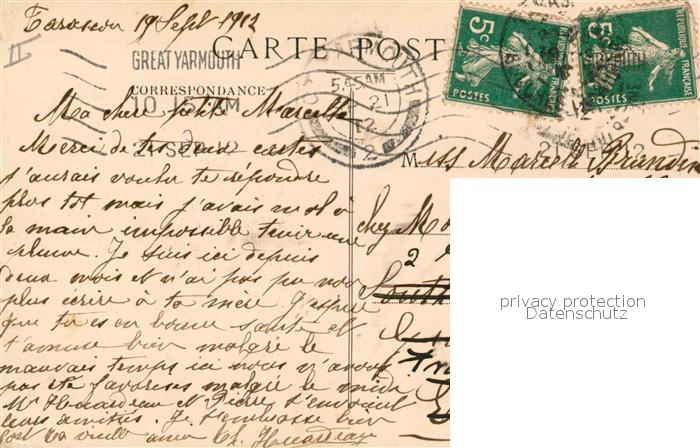 Tarascon 19 Sept 1912
GREAT YARMOUTH
CARTE POSTA
5c
5c
REPUBLIQUE FRANÇAISE
POSTES
POSTES
CORRESPONDANCE
10.15 AM
21 SEP 12
5.45 AM
21
12
Ma chère petite Marcelle
Merci de tes deux cartes
j'aurais voulu te répondre
plus tôt mais j'avais mal à
la main impossible tenir une
plume. Je suis ici depuis
deux mois et n'ai pas pu non
plus écrire à ta mère. J'espère
que tu es en bonne santé et
t'amuse bien malgré le
mauvais temps ici nous n'avons
pas été favorisés malgré le midi
Mr et Pierre t'envoient
leurs amitiés. Je t'embrasse bien
fort ta vieille amie
Miss Marcelle
chez
2
South
privacy protection
Datenschutz